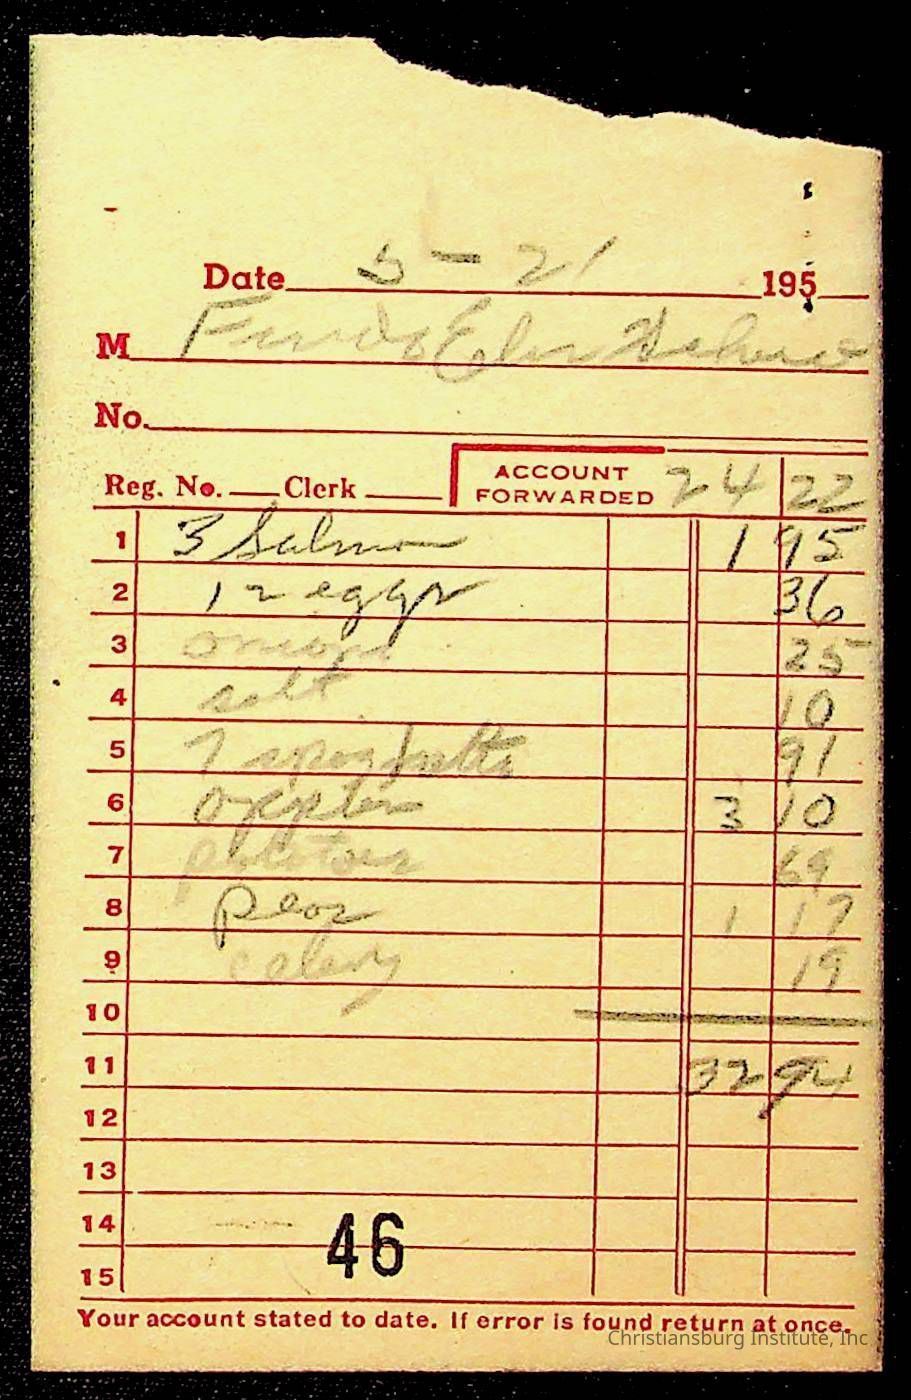 Date 5-21 195
M Friends Elem School
No.
Reg. No. Clerk ACCOUNT FORWARDED 24 22
1 3 Salmon 1 95
2 12 eggs 36
3 onions 25
4 salt 10
5 7 spaghetti 91
6 3 10
7 potatoes 69
8 peas 1 17
9 celery 19
10
11 32 94
12
13
14
15
46
Your account stated to date. If error is found return at once.
Christiansburg Institute, Inc